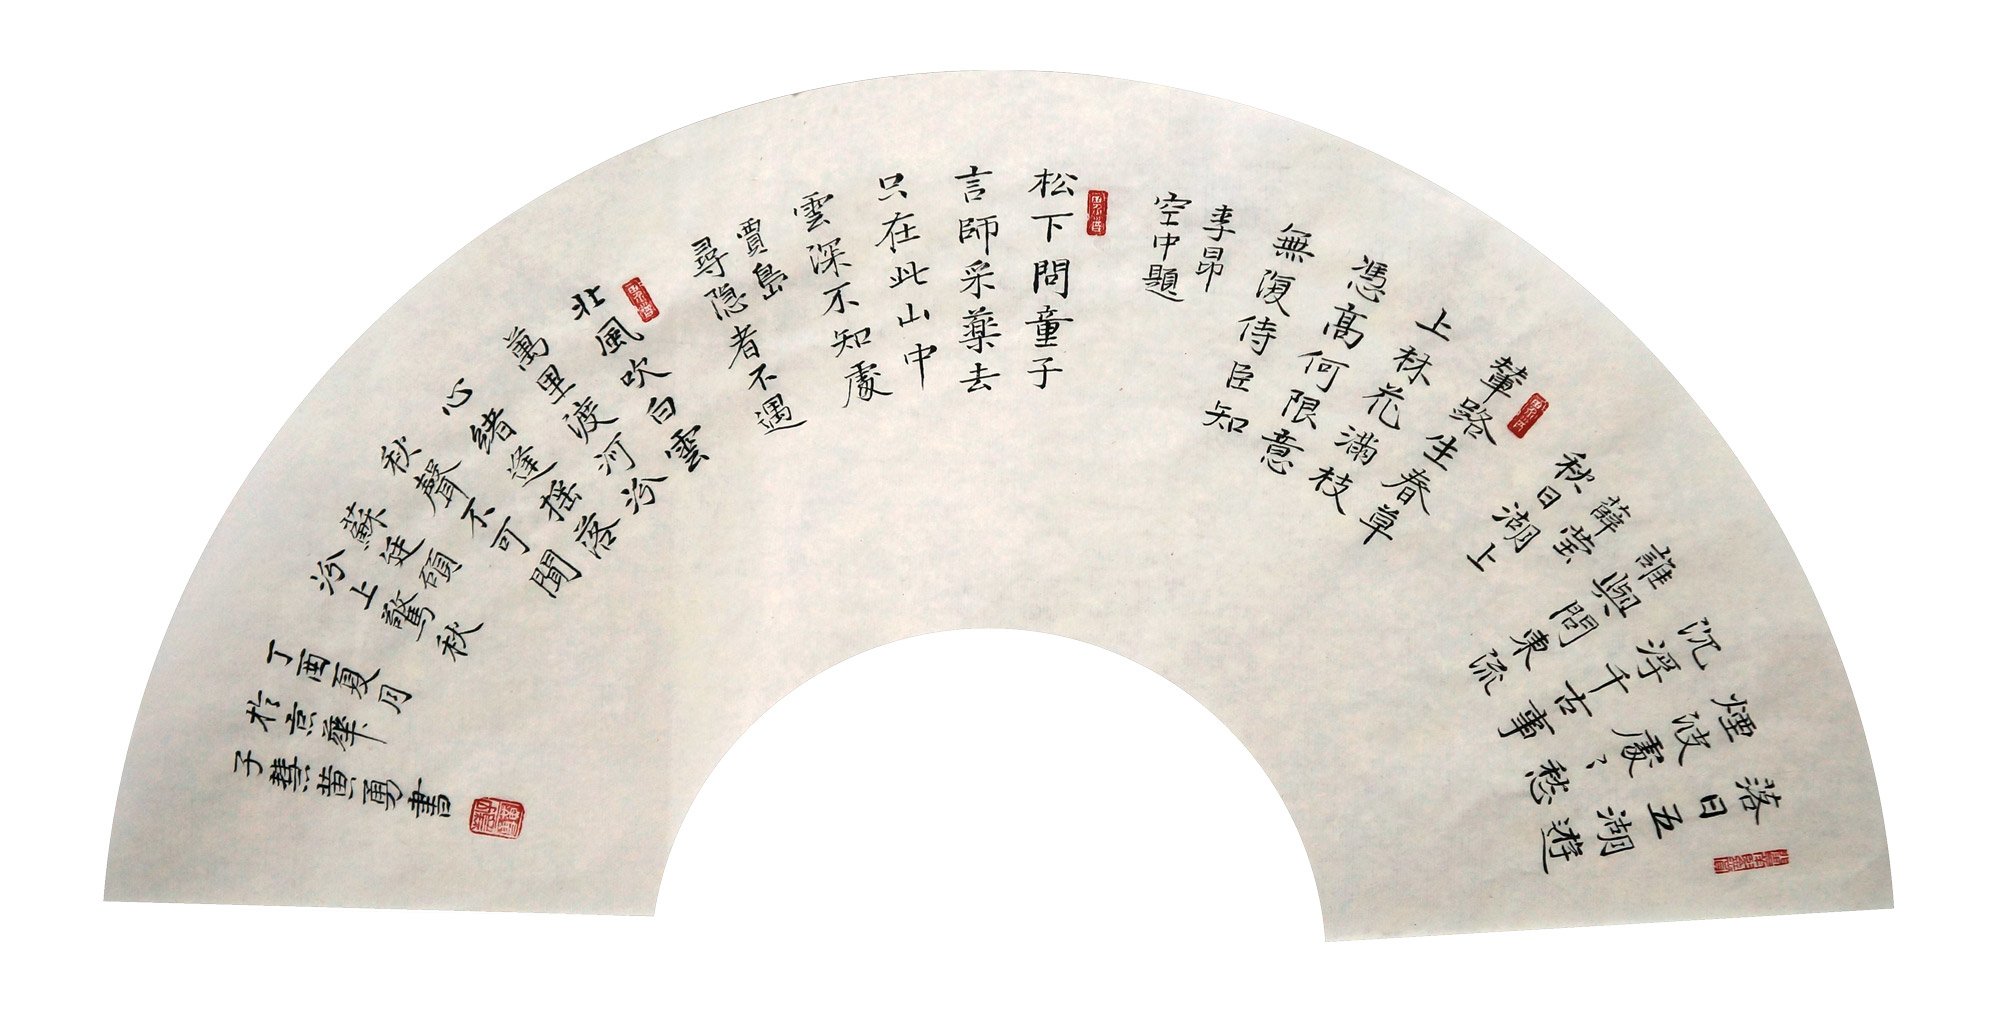 落日五湖遊
煙波處〻愁
沉浮千古事
誰與問東流
薛莹
秋日湖上
輦路生春草
上林花滿枝
憑高何限意
無復侍臣知
李昂
空中題
松下問童子
言師采藥去
只在此山中
雲深不知處
賈島
尋隐者不遇
北風吹白雲
萬里渡河汾
心緒逢摇落
秋聲不可聞
蘇廷碩
汾上驚秋
丁酉夏月
於京華
子慧黄勇書